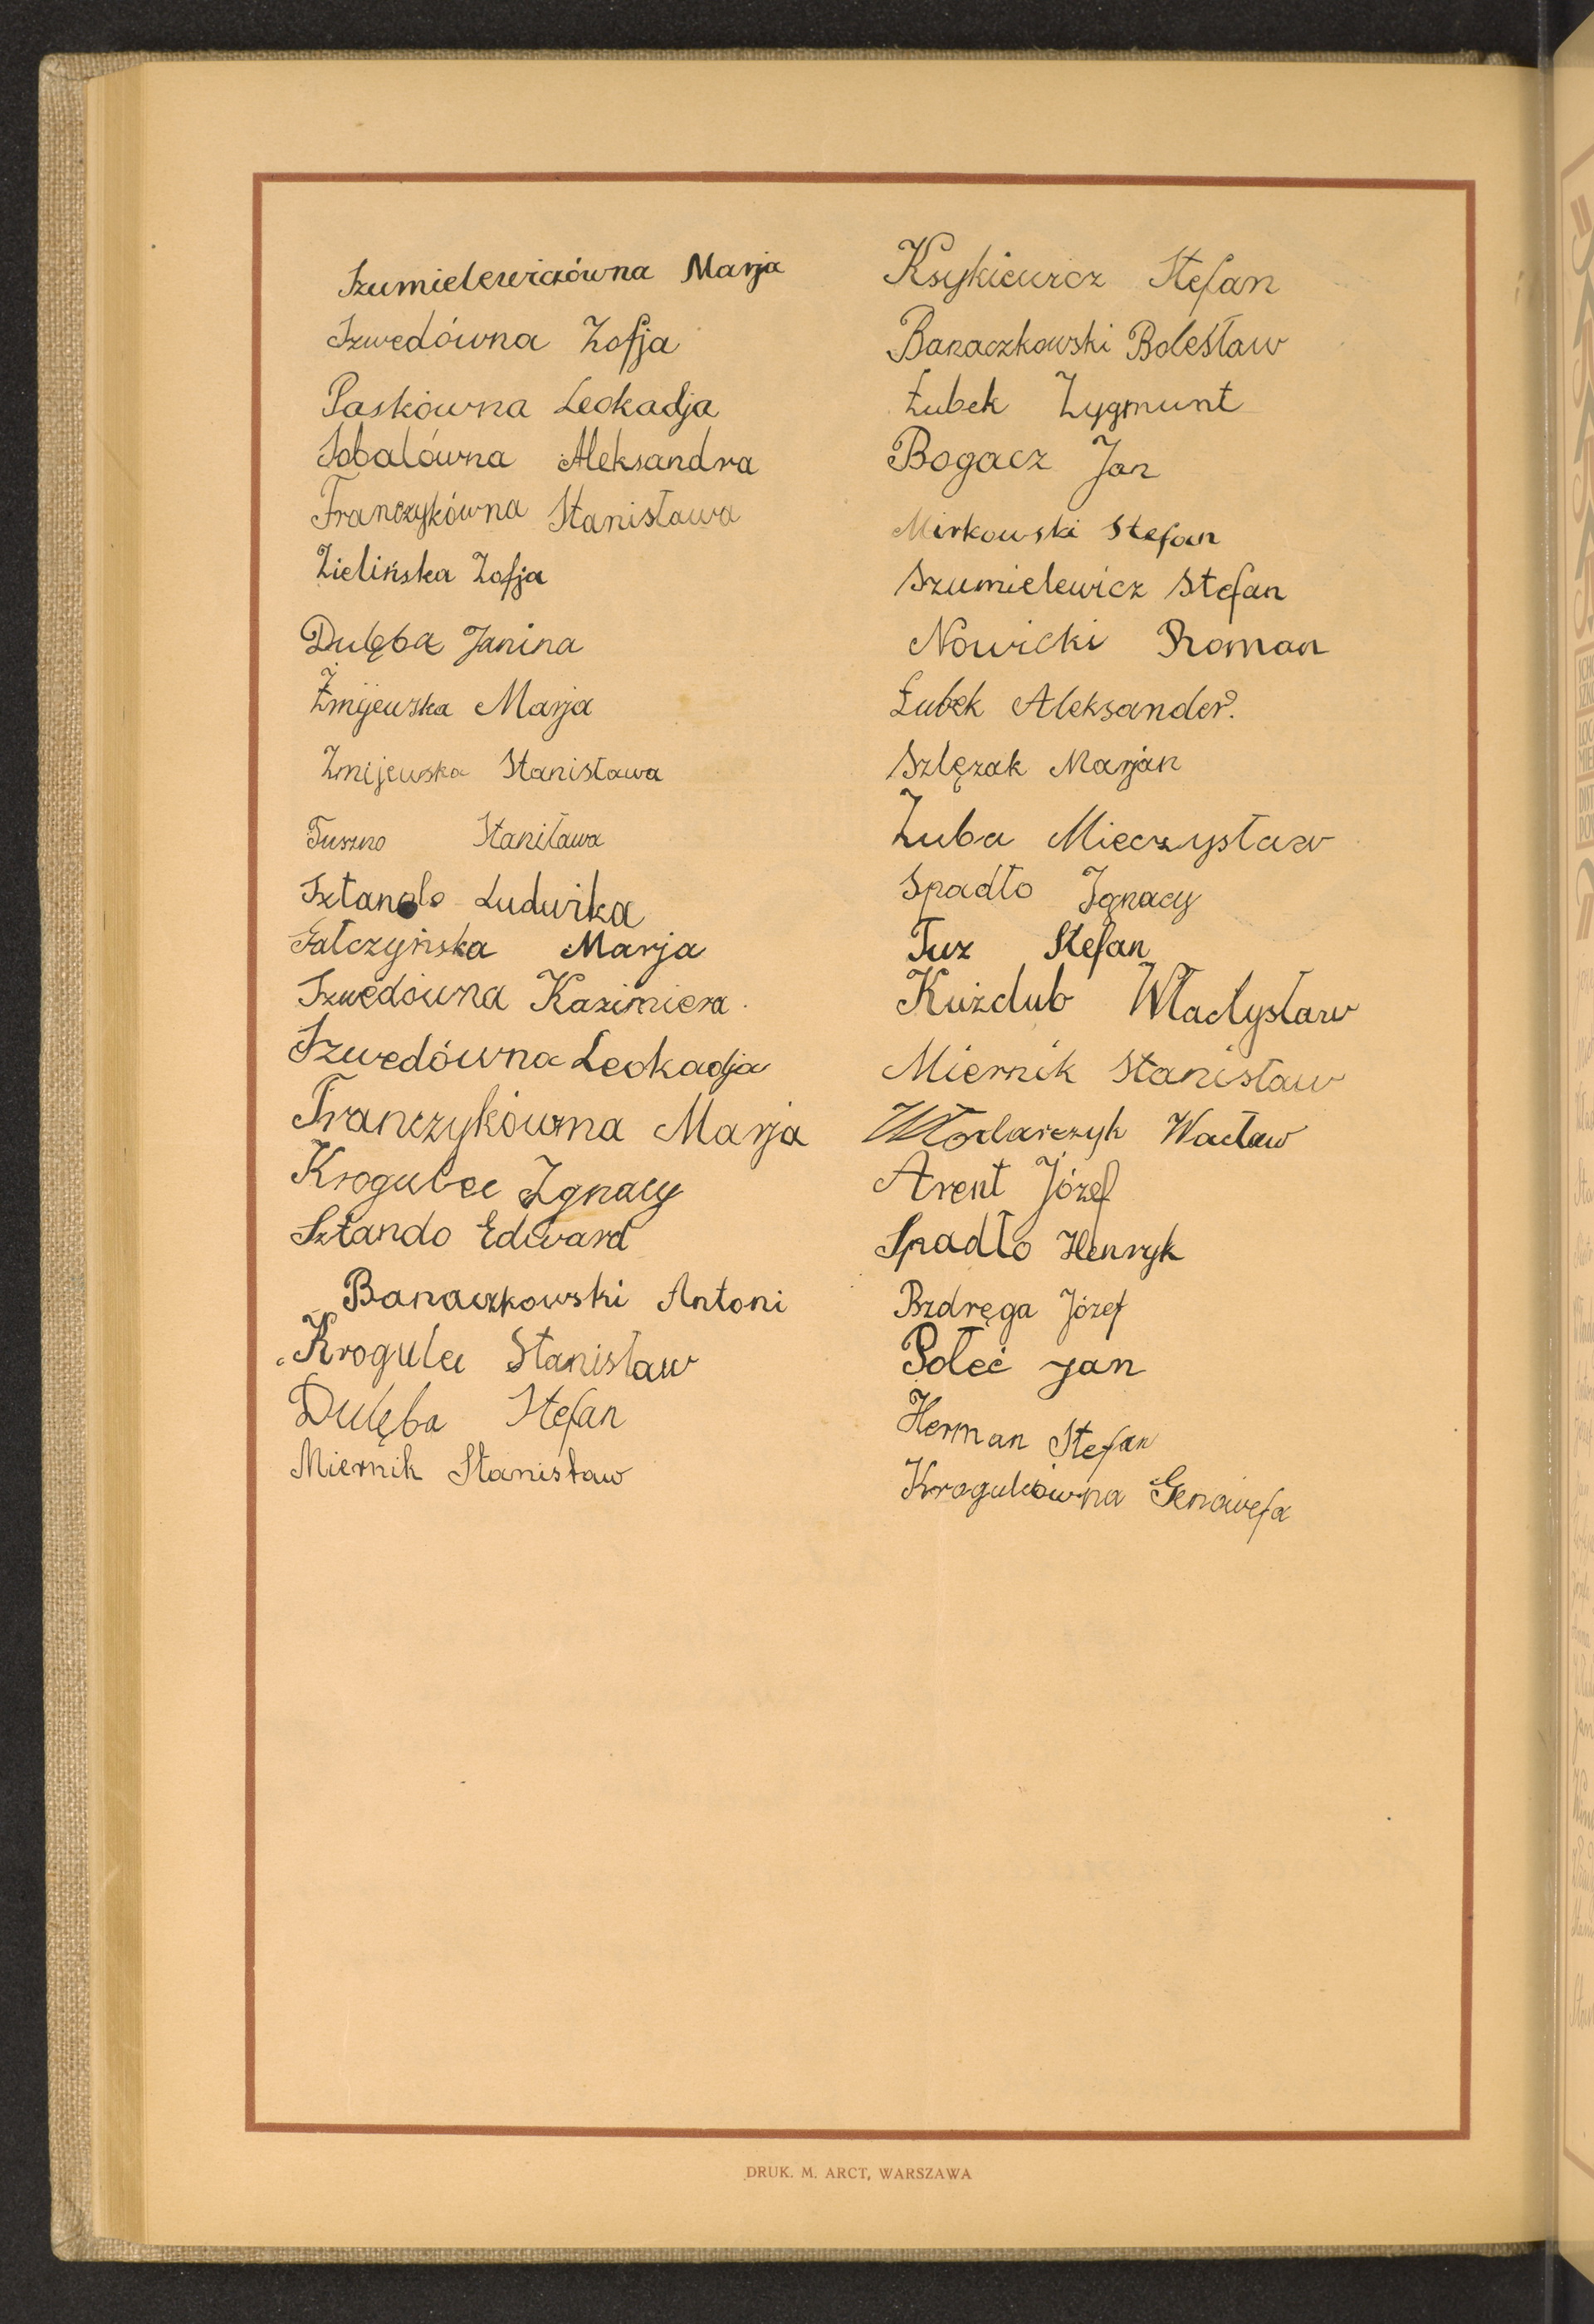 Szumielewiczówna Marja
Szwedówna Zofja
Paskówna Leokadja
Sobalówna Aleksandra
Franczykówna Stanisława
Zielińska Zofja
Dulęba Janina
Żmijewska Marja
Zmijewska Stanisława
Tuszno Staniława
Sztando Ludwika
Gałczyńska Marja
Szwedówna Kazimiera.
Szwedówna Leokadja
Franczykówna Marja
Krogulec Ignacy
Sztando Edward
Banaczkowski Antoni
Krogulec Stanisław
Dulęba Stefan
Miernik Stanisław
Ksykiewicz Stefan
Banaczkowski Bolesław
Łubek Zygmunt
Bogacz Jan
Mirkowski Stefan
Szumielewicz Stefan
Nowicki Roman
Łubek Aleksander.
Szlęzak Marjan
Zuba Mieczysław
Spadło Ignacy
Tuz Stefan
Kuźdub Władysław
Miernik Stanisław
Włodarczyk Wacław
Arent Józef
Spadło Henryk
Bzdręga Józef
Połeć Jan
Herman Stefan
Krogulcówna Genowefa
DRUK. M. ARCT, WARSZAWA